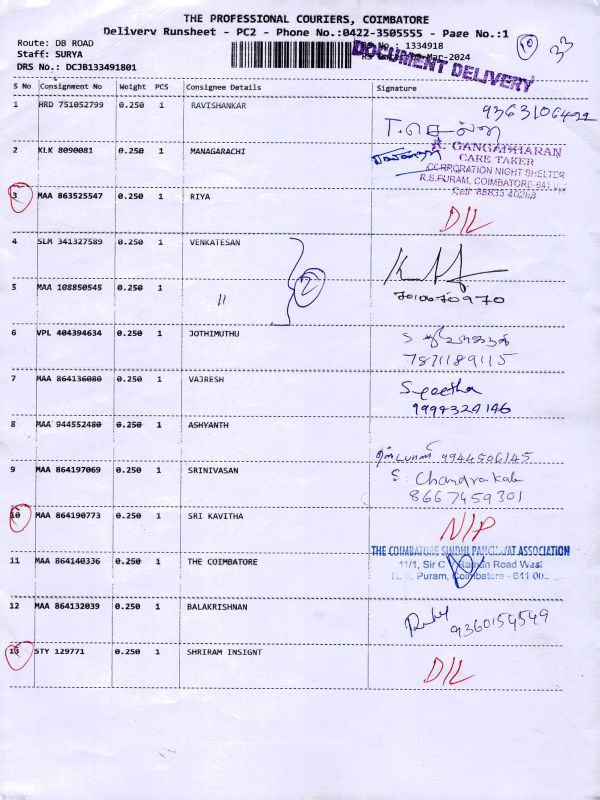 THE PROFESSIONAL COURIERS, COIMBATORE
Delivery Runsheet - PC2 - Phone No.:0422-3505555 - Page No.:1
Route: DB ROAD
Staff: SURYA
DRS No.: DCJB133491801
No.: 1334918
Mar-2024
DOCUMENT DELIVERY
10
33
S No Consignment No Weight PCS Consignee Details Signature
1 HRD 751052799 0.250 1 RAVISHANKAR
2 KLK 8090081 0.250 1 MANAGARACHI
R. GANGADHARAN
CARE TAKER
CORPORATION NIGHT SHELTER
R.S.PURAM, COIMBATORE-641
3 MAA 863525547 0.250 1 RIYA D/L
4 SLM 341327589 0.250 1 VENKATESAN
2
7010670970
5 MAA 108850545 0.250 1 〃
6 VPL 404394634 0.250 1 JOTHIMUTHU
7871189115
7 MAA 864136080 0.250 1 VAJRESH
9994324146
8 MAA 944552480 0.250 1 ASHYANTH
9944506145
9 MAA 864197069 0.250 1 SRINIVASAN
S. Chandrakala
8667459301
10 MAA 864190773 0.250 1 SRI KAVITHA N/P
11 MAA 864140336 0.250 1 THE COIMBATORE
THE COIMBATORE SINDHI PANCHAYAT ASSOCIATION
11/1, Sir C V Raman Road West
R. S. Puram, Coimbatore - 641 002
12 MAA 864132039 0.250 1 BALAKRISHNAN
9360154549
13 STY 129771 0.250 1 SHRIRAM INSIGNT D/L